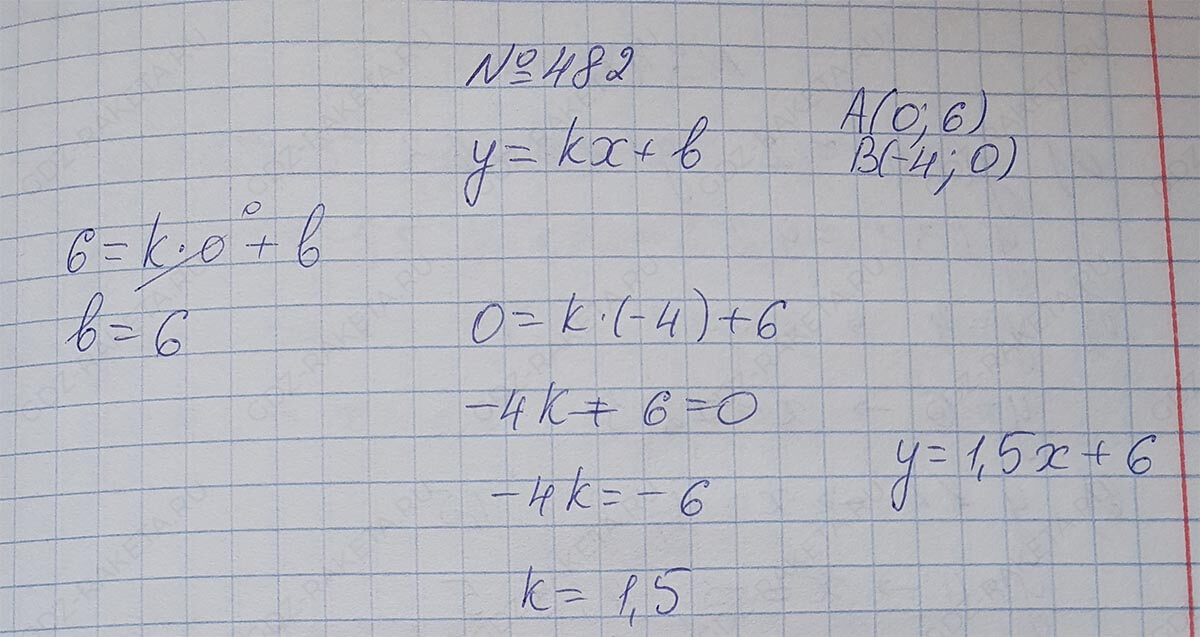 №482
y = kx + b
A(0; 6)
B(-4; 0)
6 = k·0 + b
0
b = 6
0 = k·(-4) + 6
-4k + 6 = 0
-4k = - 6
k = 1,5
y = 1,5x + 6